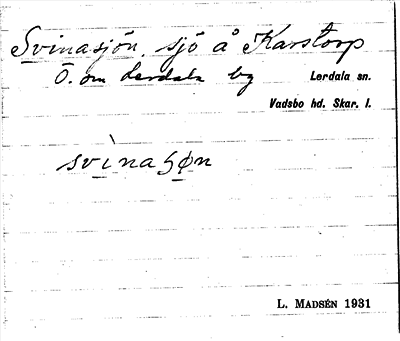 Svinasjön, sjö å Karstorp
Ö. om Lerdala by Lerdala sn.
Vadsbo hd. Skar. l.
svìnaʂøn
L. Madsén 1931